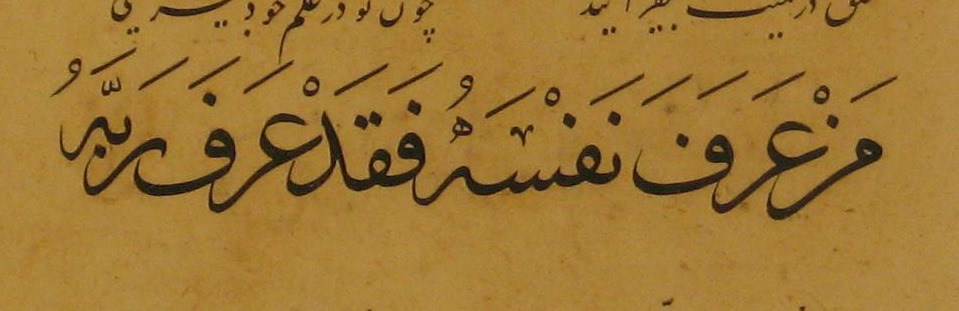 چون تو در علم خود
مَنْ عَرَفَ نَفْسَهُ فَقَدْ عَرَفَ رَبَّهُ